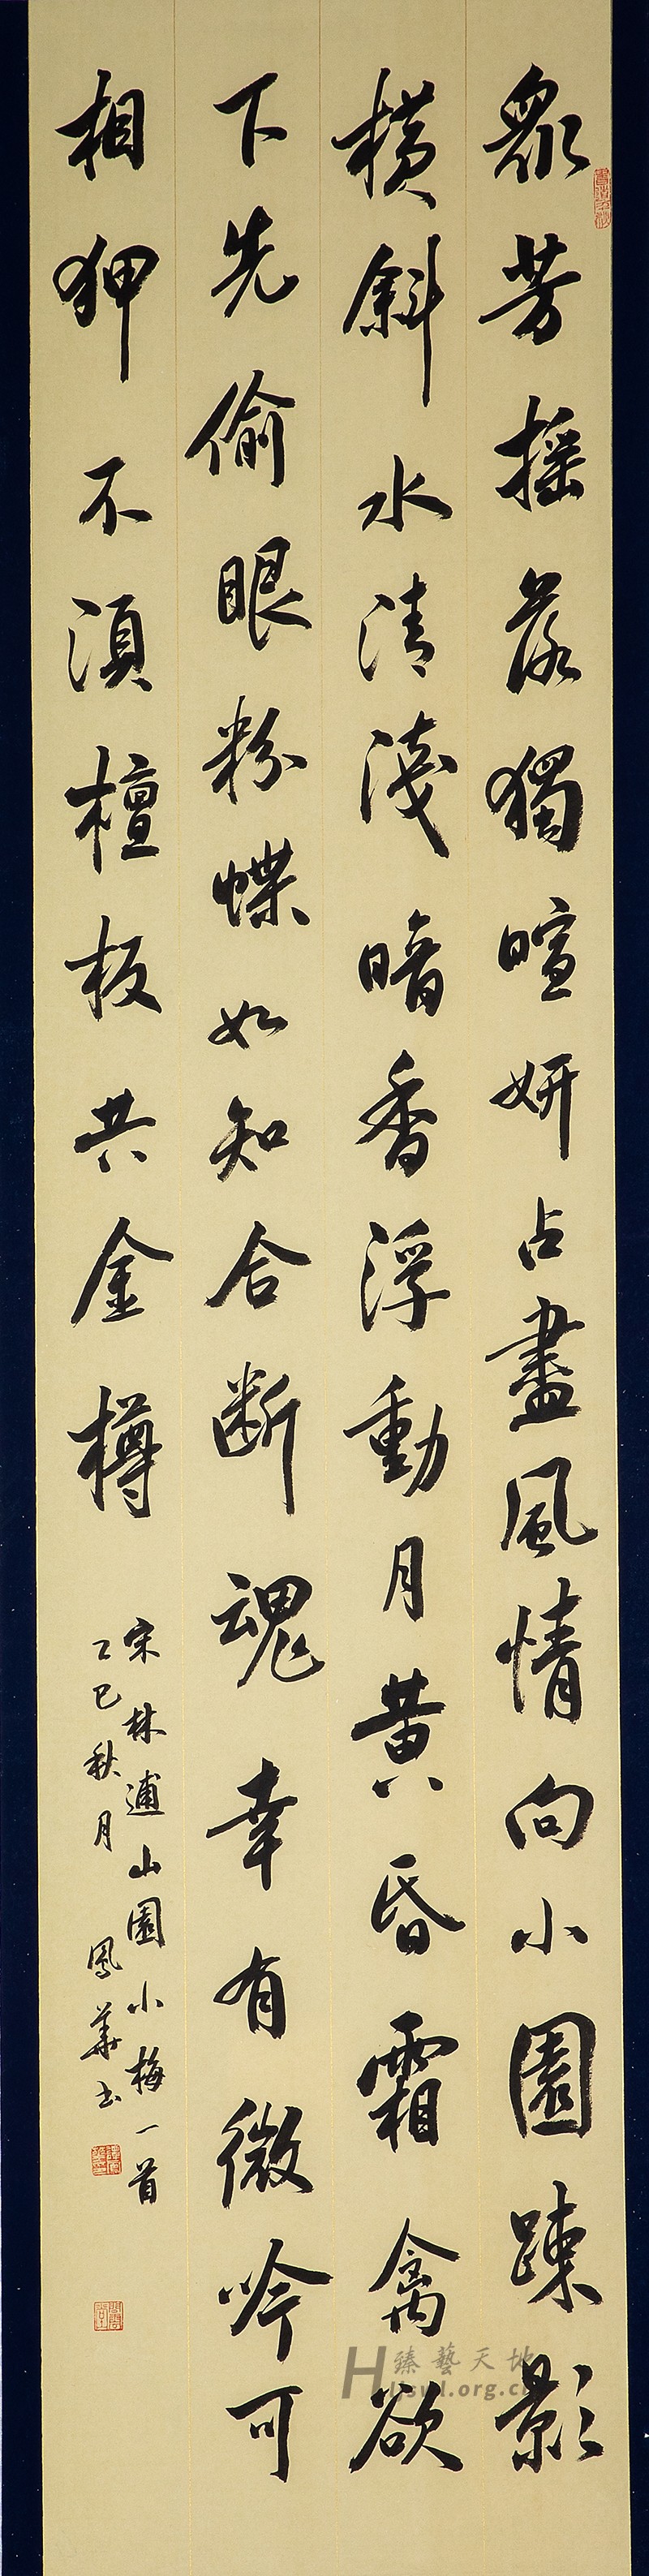 眾芳摇落獨暄妍占盡風情向小園踈影
橫斜水清淺暗香浮動月黃昏霜禽欲
下先偷眼粉蝶如知合断魂幸有微吟可
相狎不須檀板共金樽
宋林逋山園小梅一首
乙巳秋月 鳳華书
臻藝天地